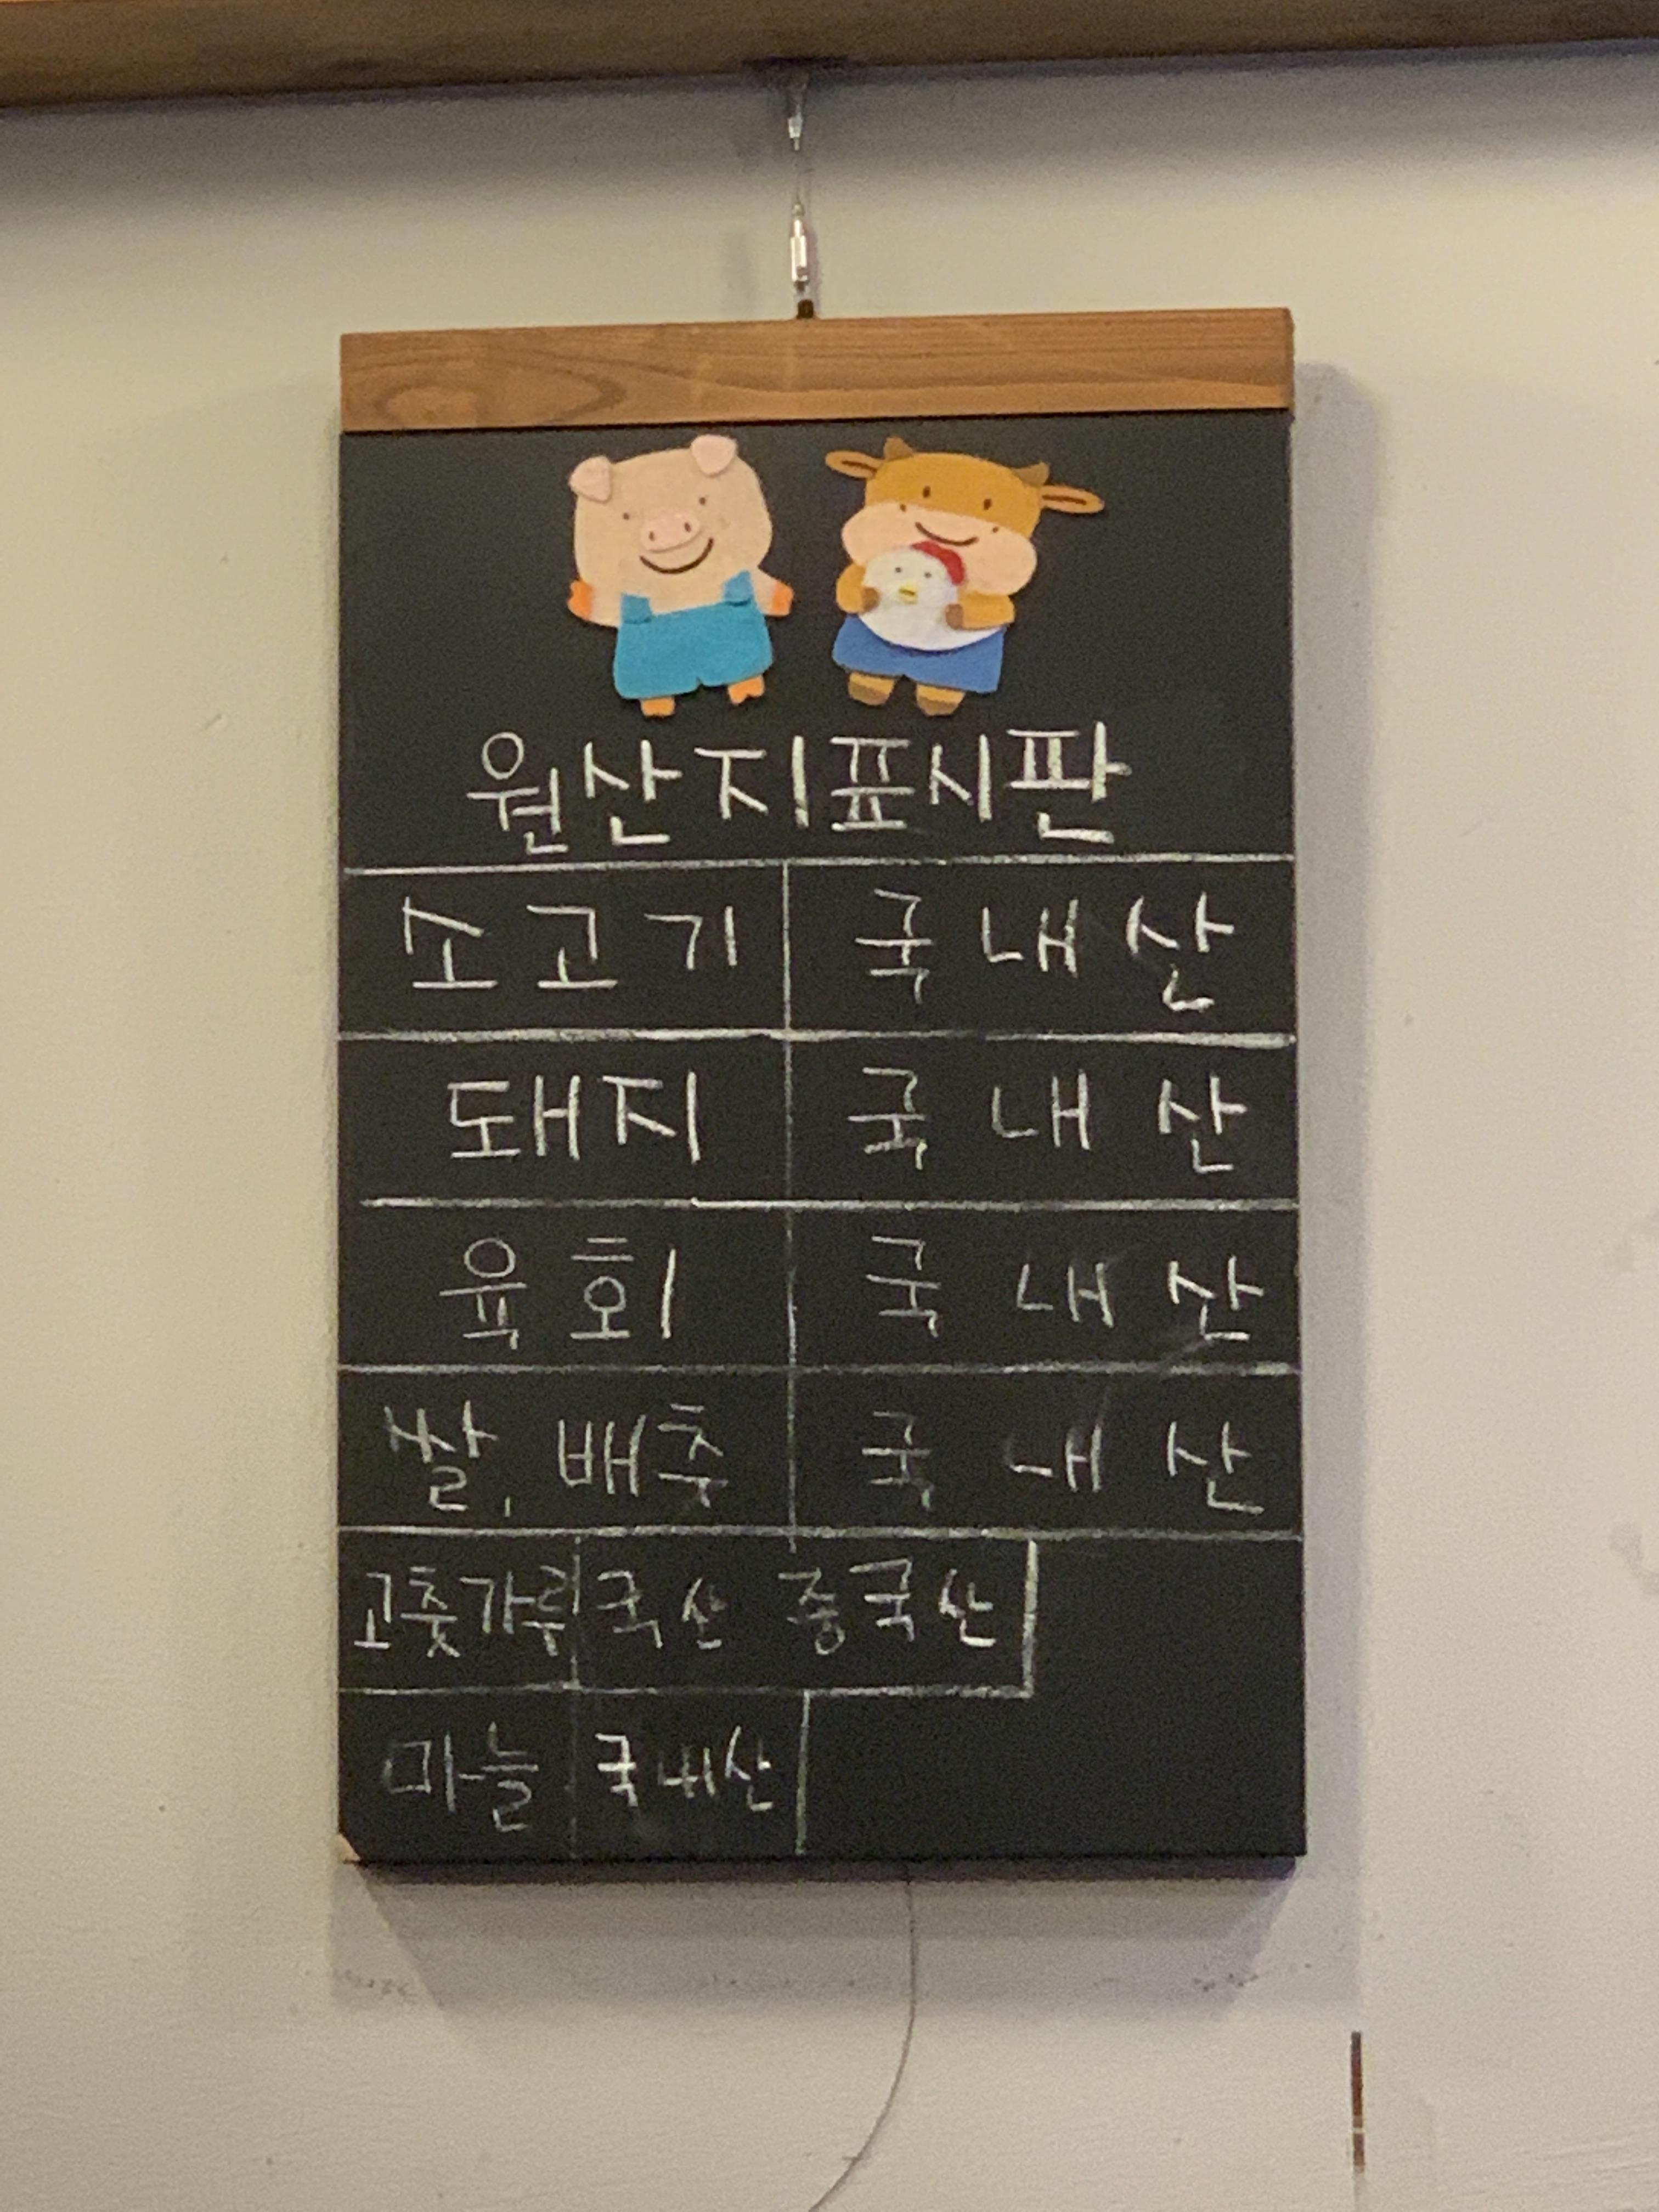 원산지표시판
소고기 국내산
돼지 국내산
육회 국내산
쌀, 배추 국내산
고춧가루 국산 중국산
마늘 국내산